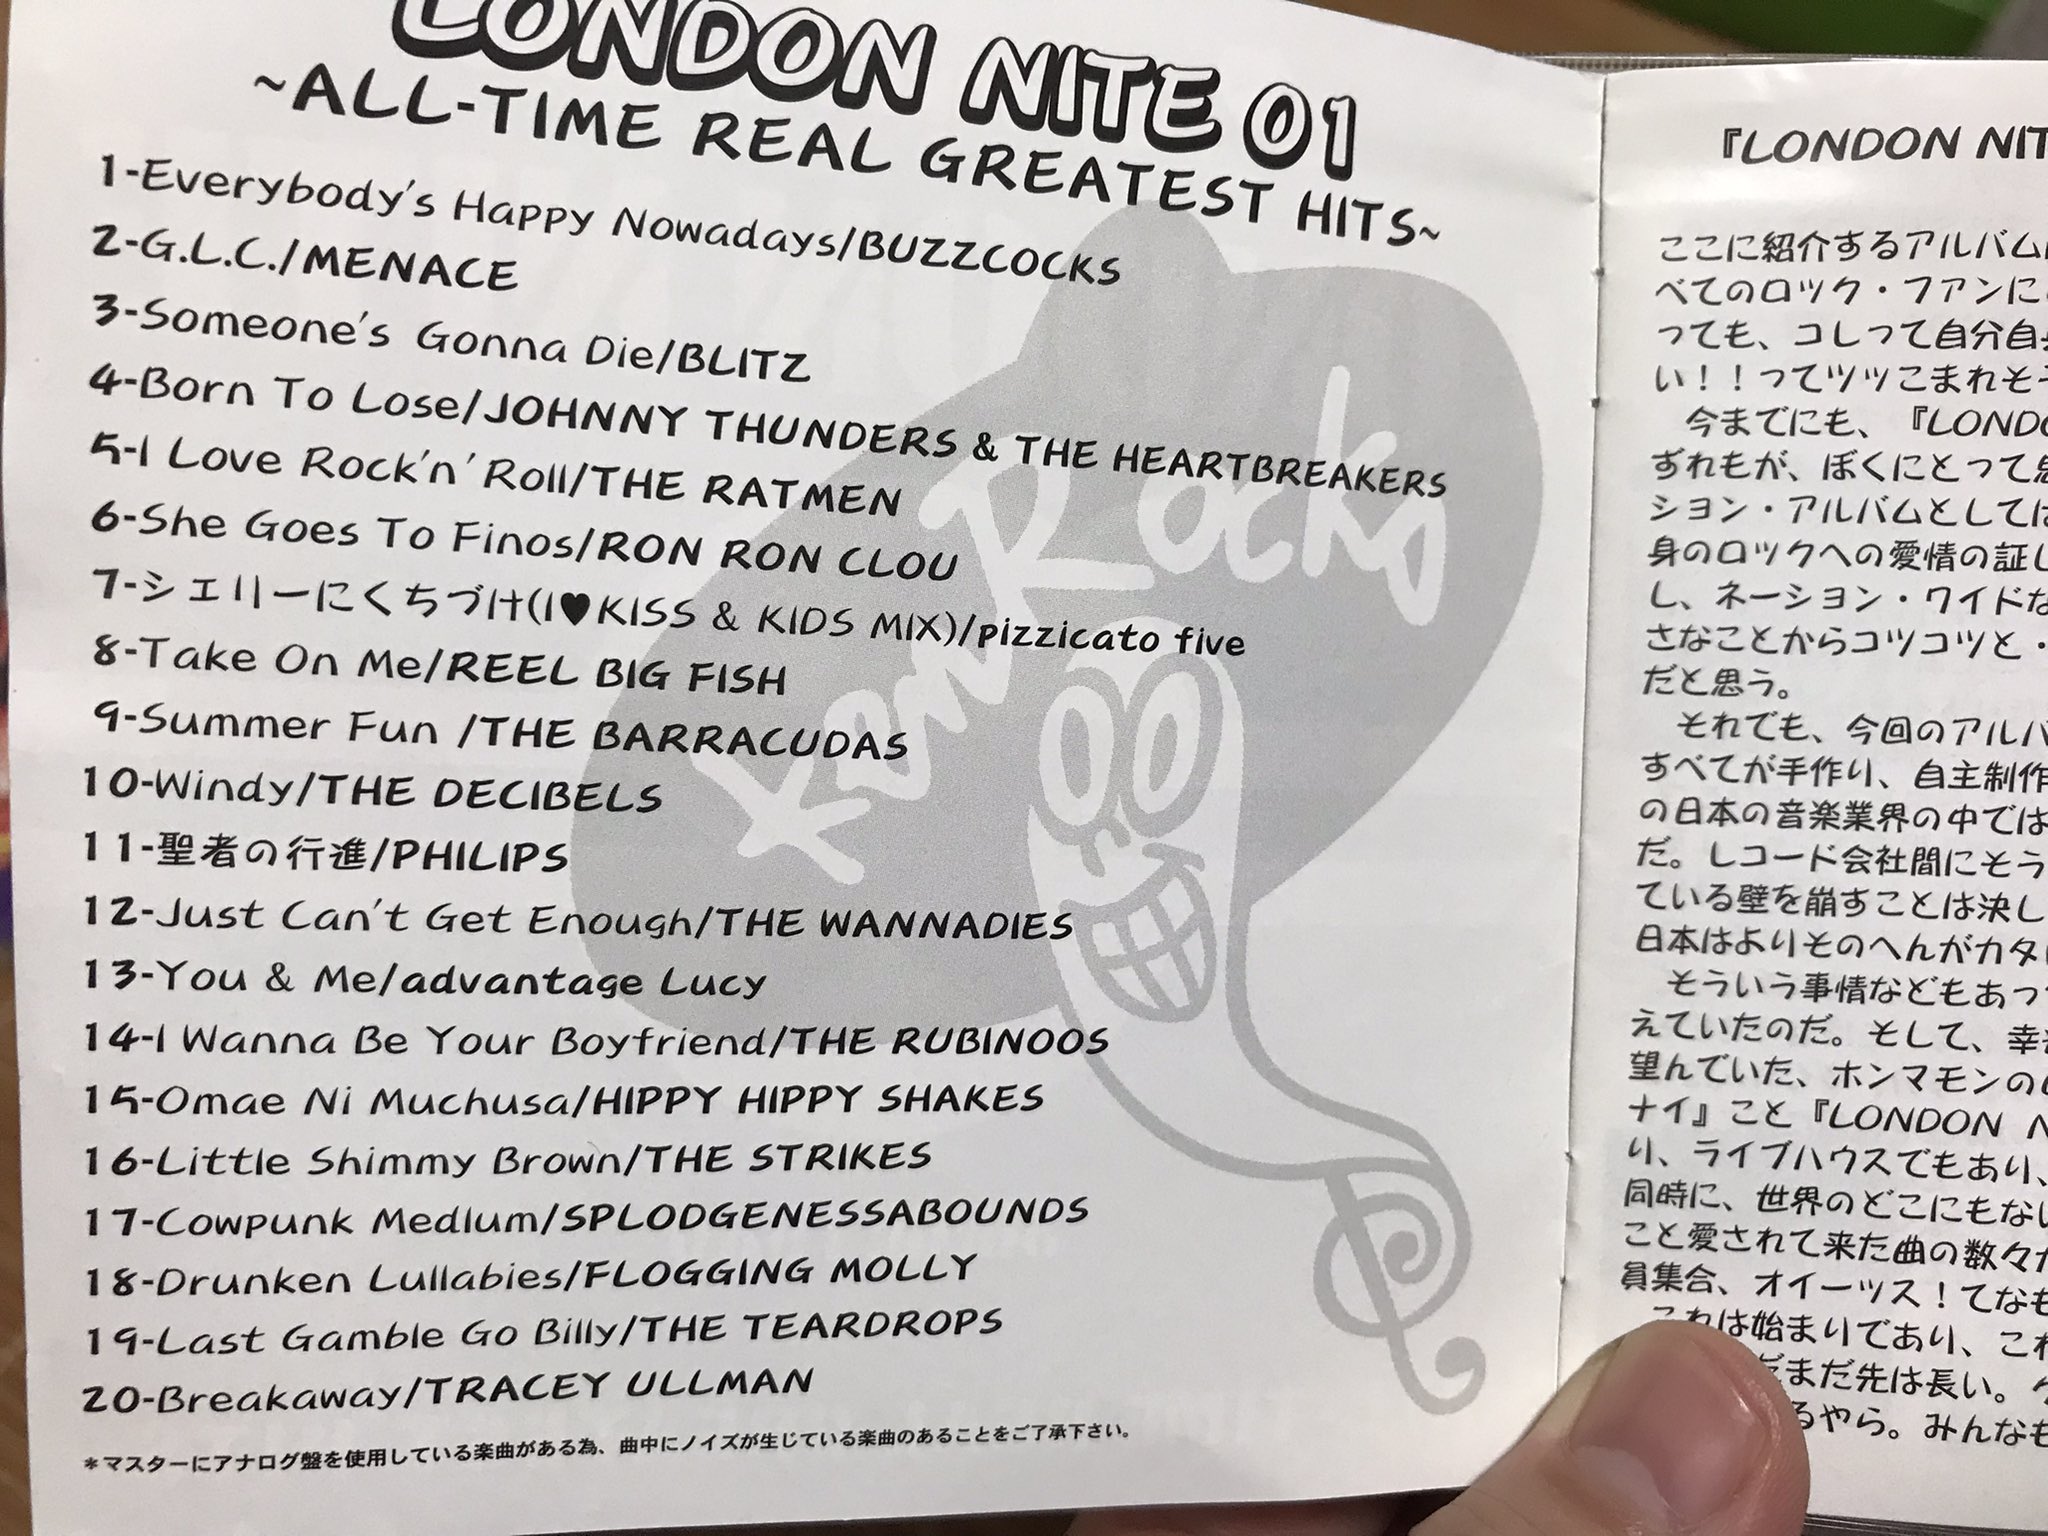 LONDON NITE 01
~ALL-TIME REAL GREATEST HITS~
1-Everybody's Happy Nowadays/BUZZCOCKS
2-G.L.C./MENACE
3-Someone's Gonna Die/BLITZ
4-Born To Lose/JOHNNY THUNDERS & THE HEARTBREAKERS
5-I Love Rock'n' Roll/THE RATMEN
6-She Goes To Finos/RON RON CLOU
7-シェリーにくちづけ(I♥KISS & KIDS MIX)/pizzicato five
8-Take On Me/REEL BIG FISH
9-Summer Fun /THE BARRACUDAS
10-Windy/THE DECIBELS
11-聖者の行進/PHILIPS
12-Just Can't Get Enough/THE WANNADIES
13-You & Me/advantage Lucy
14-I Wanna Be Your Boyfriend/THE RUBINOOS
15-Omae Ni Muchusa/HIPPY HIPPY SHAKES
16-Little Shimmy Brown/THE STRIKES
17-Cowpunk Medlum/SPLODGENESSABOUNDS
18-Drunken Lullabies/FLOGGING MOLLY
19-Last Gamble Go Billy/THE TEARDROPS
20-Breakaway/TRACEY ULLMAN
*マスターにアナログ盤を使用している楽曲がある為、曲中にノイズが生じている楽曲のあることをご了承下さい。
KenRocks
『LONDON NIT
ここに紹介するアルバム
べてのロック・ファンに
っても、コレって自分自身
い!!ってツッこまれそ
今までにも、『LONDO
ずれもが、ぼくにとって思
ション・アルバムとしては
身のロックへの愛情の証し
し、ネーション・ワイドな
さなことからコツコツと・
だと思う。
それでも、今回のアルバ
すべてが手作り、自主制作
の日本の音楽業界の中では
だ。レコード会社間にそう
ている壁を崩すことは決し
日本はよりそのへんがカタ
そういう事情などもあっ
えていたのだ。そして、幸
望んでいた、ホンマモンの
ナイ』こと『LONDON N
り、ライブハウスでもあり、
同時に、世界のどこにもない
こと愛されて来た曲の数々
員集合、オイーッス!てなも
これは始まりであり、これ
だまだ先は長い。
るやら。みんなも